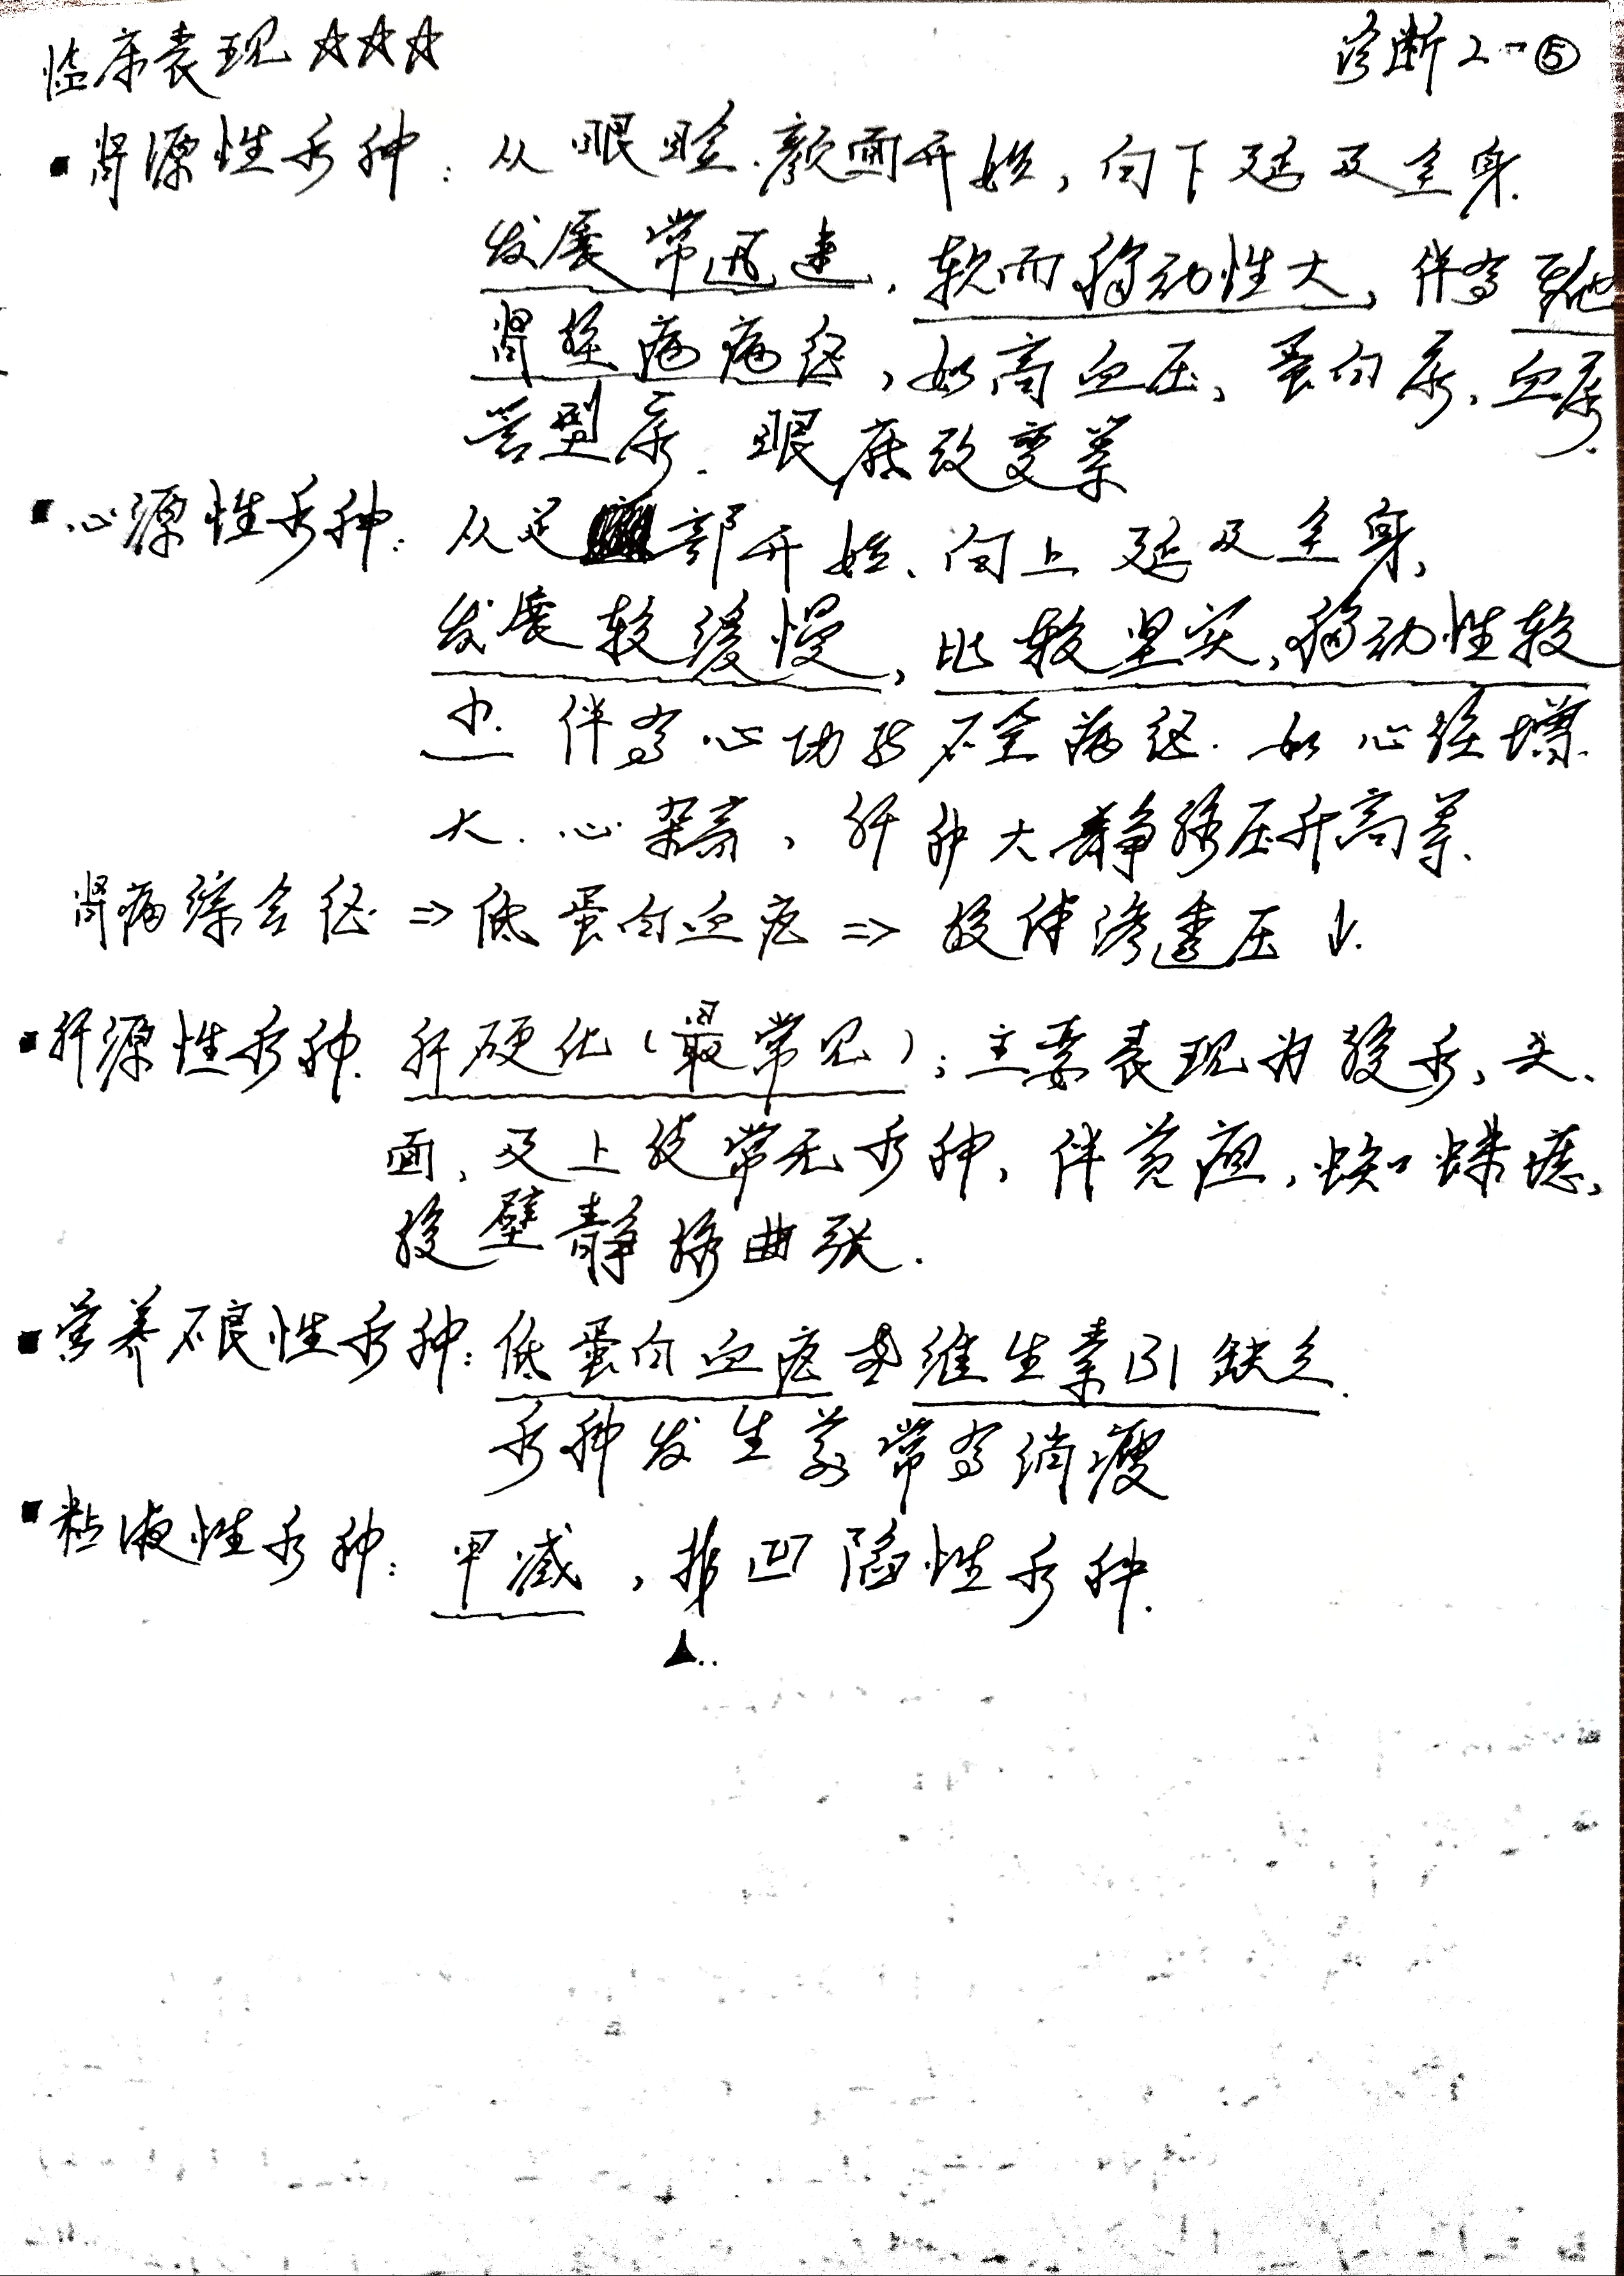 临床表现 ☆☆☆
诊断2-⑤
▪肾源性水肿:从眼睑.颜面开始,向下延及全身.
发展常迅速,软而移动性大,伴有其他
肾脏病病征,如高血压、蛋白尿、血尿.
管型尿.眼底改变等
▪心源性水肿:从足部开始、向上延及全身,
发展较缓慢,比较坚实,移动性较
小.伴有心功能不全病征.如心脏增
大.心杂音,肝肿大静脉压升高等.
肾病综合征⇒低蛋白血症⇒胶体渗透压↓.
▪肝源性水肿.肝硬化(最常见);主要表现为腹水,头、
面,及上肢常无水肿,伴黄疸,蜘蛛痣,
腹壁静脉曲张.
▪营养不良性水肿:低蛋白血症 维生素B1缺乏.
水肿发生前常有消瘦
▪粘液性水肿:甲减,非凹陷性水肿.